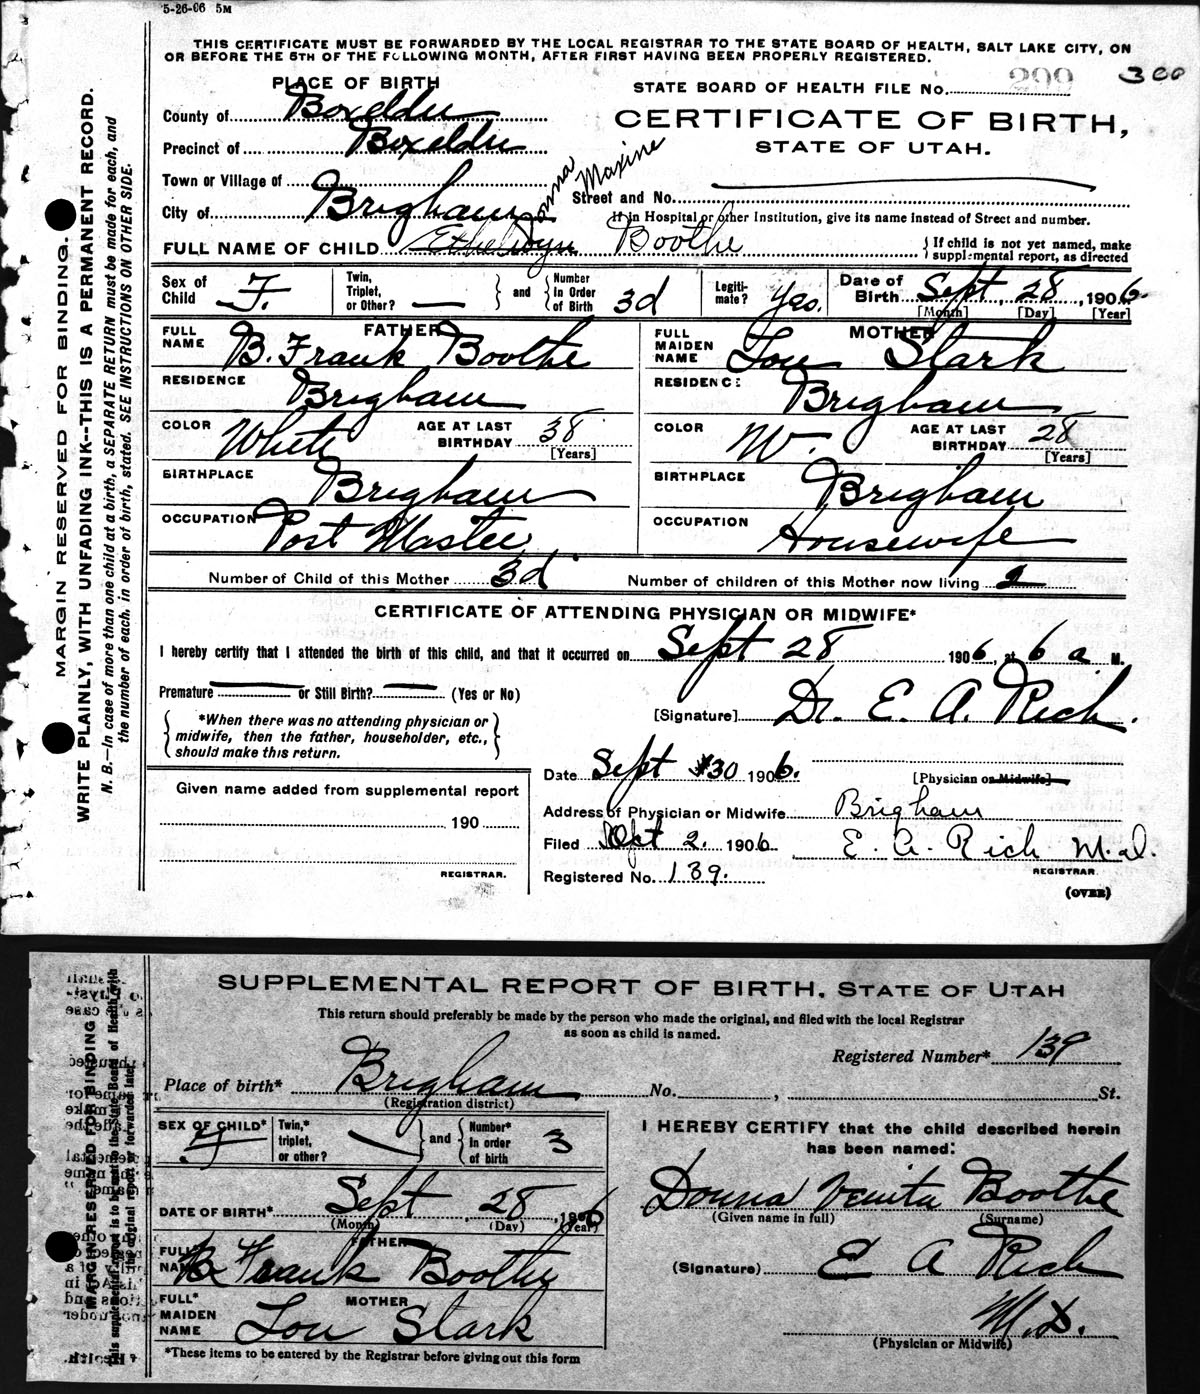 5-26-06 5M
THIS CERTIFICATE MUST BE FORWARDED BY THE LOCAL REGISTRAR TO THE STATE BOARD OF HEALTH, SALT LAKE CITY, ON
OR BEFORE THE 5TH OF THE FOLLOWING MONTH, AFTER FIRST HAVING BEEN PROPERLY REGISTERED.
PLACE OF BIRTH
STATE BOARD OF HEALTH FILE No. 299 300
County of Boxelder
CERTIFICATE OF BIRTH,
Precinct of Boxelder
STATE OF UTAH.
Town or Village of
Donna Maxine
Street and No.
City of Brigham
If in Hospital or other Institution, give its name instead of Street and number.
FULL NAME OF CHILD Ethelwyn Boothe
If child is not yet named, make
supplemental report, as directed
Sex of Child F.
Twin, Triplet, or Other? — and Number in Order of Birth 3d
Legiti- mate? Yes.
Date of Birth Sept 28, 1906.
[Month] [Day] [Year]
FATHER
FULL NAME B. Frank Boothe
RESIDENCE Brigham
COLOR White AGE AT LAST BIRTHDAY 38
[Years]
BIRTHPLACE Brigham
OCCUPATION Post Master
MOTHER
FULL MAIDEN NAME Lou Stark
RESIDENCE: Brigham
COLOR W. AGE AT LAST BIRTHDAY 28
[Years]
BIRTHPLACE Brigham
OCCUPATION Housewife
Number of Child of this Mother 3d Number of children of this Mother now living 2
CERTIFICATE OF ATTENDING PHYSICIAN OR MIDWIFE*
I hereby certify that I attended the birth of this child, and that it occurred on Sept 28 1906, at 6 a. M.
Premature — or Still Birth? — (Yes or No)
[Signature] Dr. E. A. Rich.
*When there was no attending physician or
midwife, then the father, householder, etc.,
should make this return.
Date Sept 30 1906.
[Physician or Midwife]
Given name added from supplemental report
190
REGISTRAR.
Address of Physician or Midwife Brigham
Filed Oct 2. 1906 E. A. Rich M.D.
REGISTRAR
Registered No. 139.
(OVER)
MARGIN RESERVED FOR BINDING.
WRITE PLAINLY, WITH UNFADING INK--THIS IS A PERMANENT RECORD.
N. B.—In case of more than one child at a birth, a SEPARATE RETURN must be made for each, and
the number of each, in order of birth, stated. SEE INSTRUCTIONS ON OTHER SIDE.
SUPPLEMENTAL REPORT OF BIRTH, STATE OF UTAH
This return should preferably be made by the person who made the original, and filed with the local Registrar
as soon as child is named.
Registered Number* 139
Place of birth* Brigham No. , St.
(Registration district)
SEX OF CHILD* F
Twin,* triplet, or other? and Number* in order of birth 3
DATE OF BIRTH* Sept, 28, 1906
(Month) (Day) (Year)
FATHER
FULL NAME B Frank Boothe
FULL* MAIDEN NAME MOTHER Lou Stark
*These items to be entered by the Registrar before giving out this form
I HEREBY CERTIFY that the child described herein
has been named:
Donna Venita Boothe
(Given name in full) (Surname)
(Signature) E A Rich
M.D.
(Physician or Midwife)
MARGIN RESERVED FOR BINDING